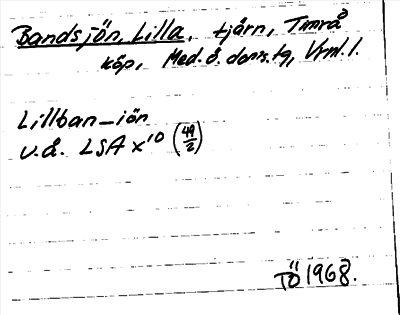 Bandsjön, Lilla, tjärn, Timrå
köp, Med.ö. doms.lg, Vrnl.l.
Lillban–iön
U.å. LSA x¹⁰ (49/2)
TÖ 1968.